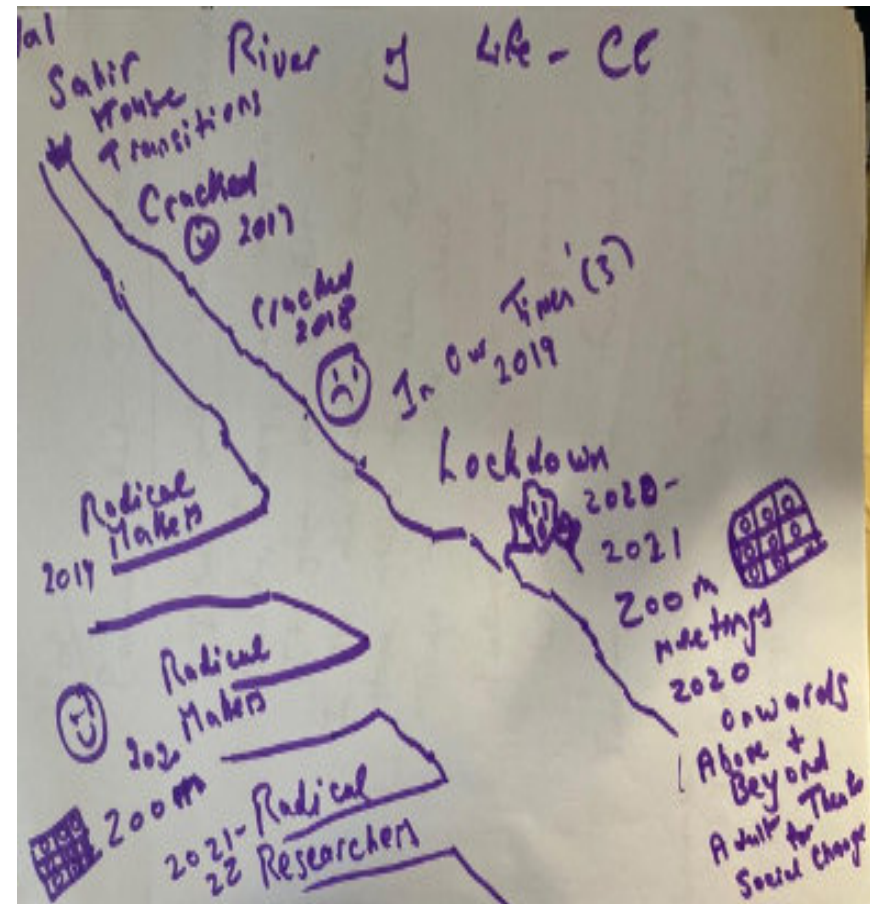 River of Life - CC
Sahir
House
Transitions
Cracked
2017
Cracked
2018
In Our Times' (3)
2019
Lockdown
2020-
2021
Zoom
meetings
2020
onwards
Above +
Beyond
Adult Theatre
for
Social Change
Radical
Makers
2019
Radical
Makers
2020
Zoom
2021-Radical
22 Researchers